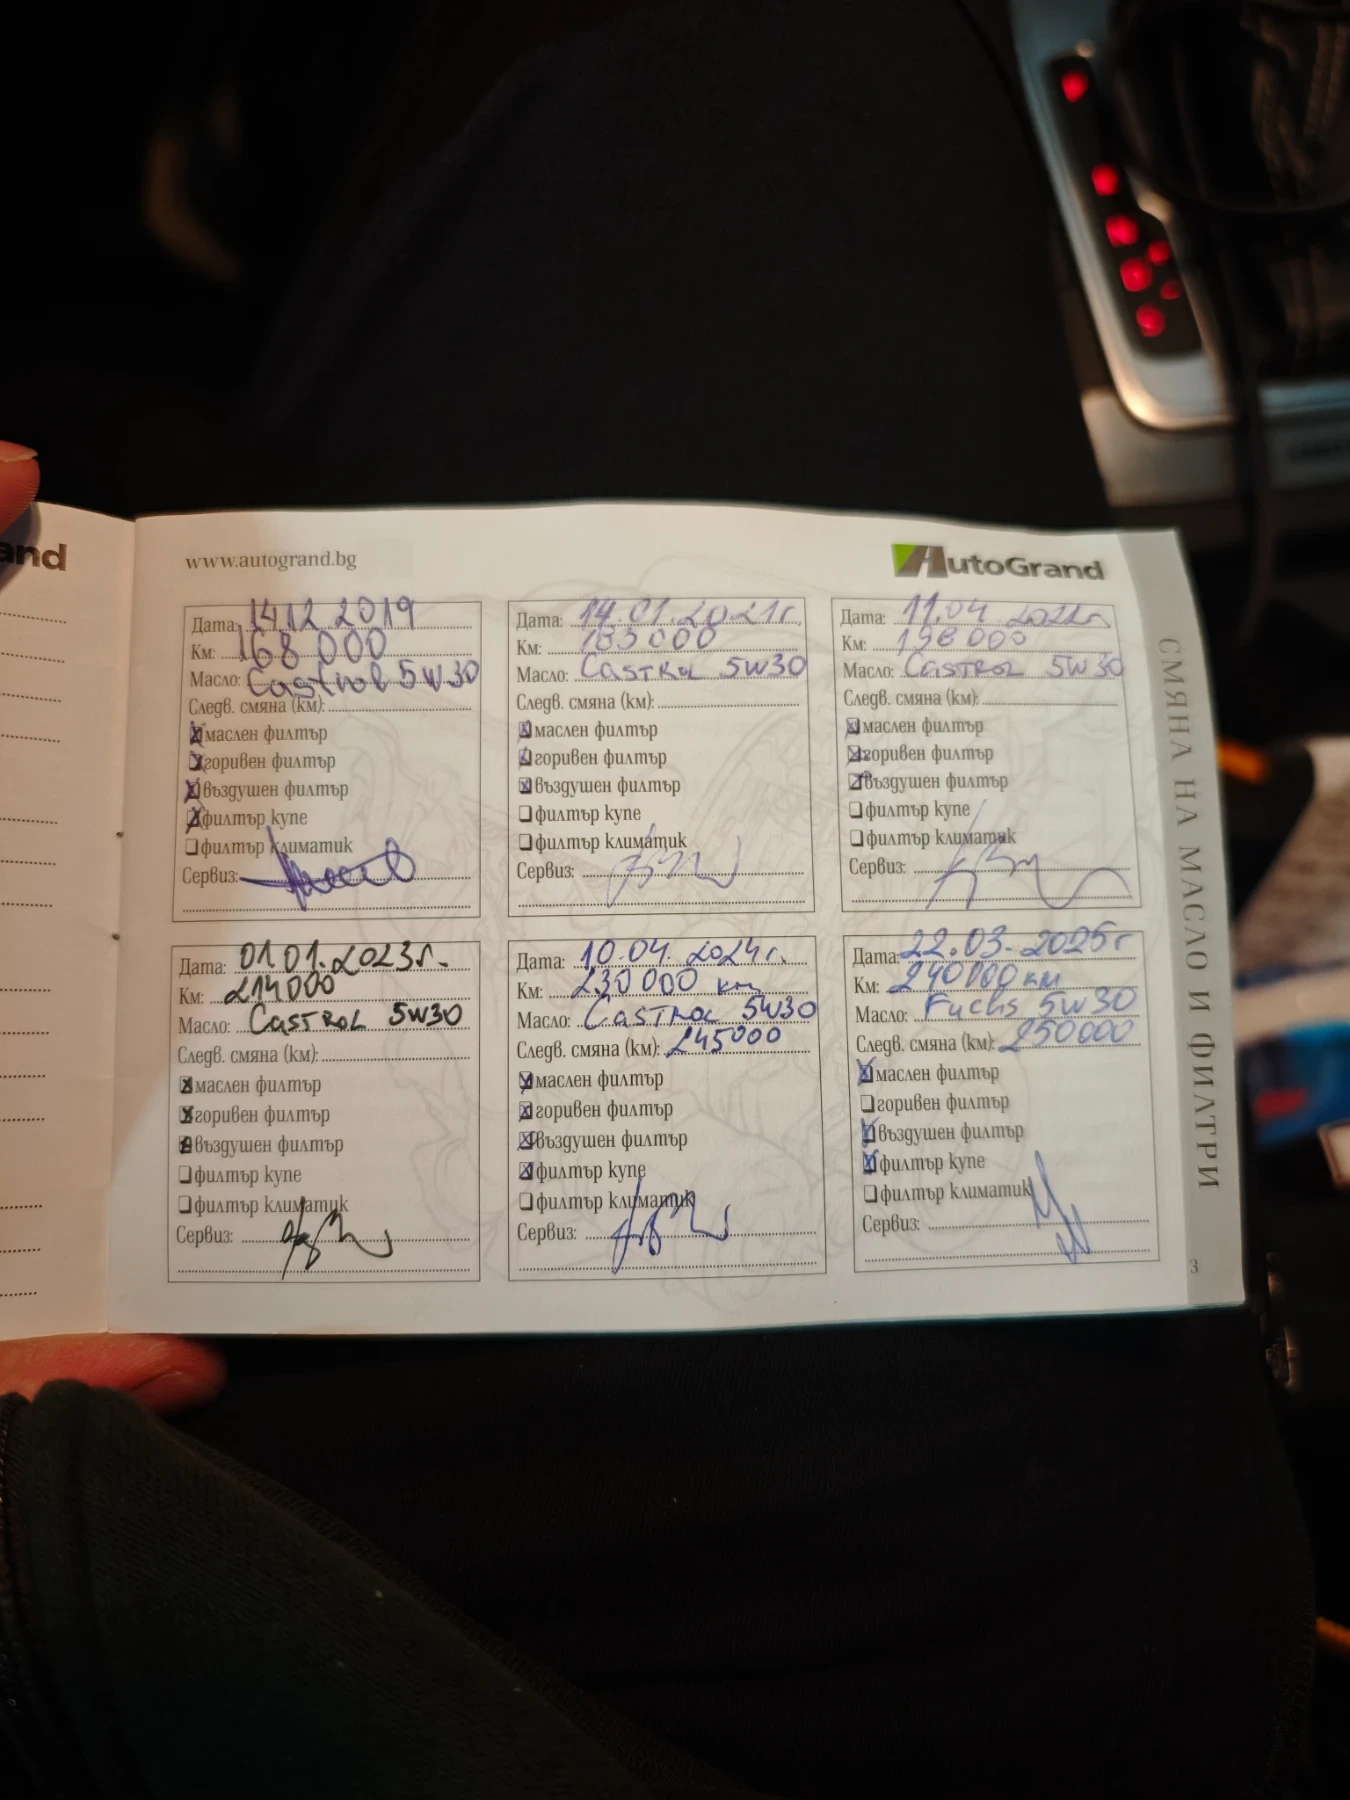 and
www.autogrand.bg
AutoGrand
Дата: 14.12.2019
Км: 168 000
Масло: Castrol 5W30
Следв. смяна (км):
маслен филтър
горивен филтър
въздушен филтър
филтър купе
филтър климатик
Сервиз:
Дата: 14.01.2021г.
Км: 183000
Масло: CASTROL 5W30
Следв. смяна (км):
маслен филтър
горивен филтър
въздушен филтър
филтър купе
филтър климатик
Сервиз:
Дата: 11.04
Км: 198000
Масло: CASTROL 5W30
Следв. смяна (км):
маслен филтър
горивен филтър
въздушен филтър
филтър купе
филтър климатик
Сервиз:
Дата: 01.01.2023г.
Км: 214000
Масло: CASTROL 5W30
Следв. смяна (км):
маслен филтър
горивен филтър
въздушен филтър
филтър купе
филтър климатик
Сервиз:
Дата: 10.04.2024г.
Км: 230 000 км
Масло: CASTROL 5W30
Следв. смяна (км): 245000
маслен филтър
горивен филтър
въздушен филтър
филтър купе
филтър климатик
Сервиз:
Дата: 22.03.2025г
Км: 240000 км
Масло: Fuchs 5W30
Следв. смяна (км): 250000
маслен филтър
горивен филтър
въздушен филтър
филтър купе
филтър климатик
Сервиз:
СМЯНА НА МАСЛО И ФИЛТРИ
3